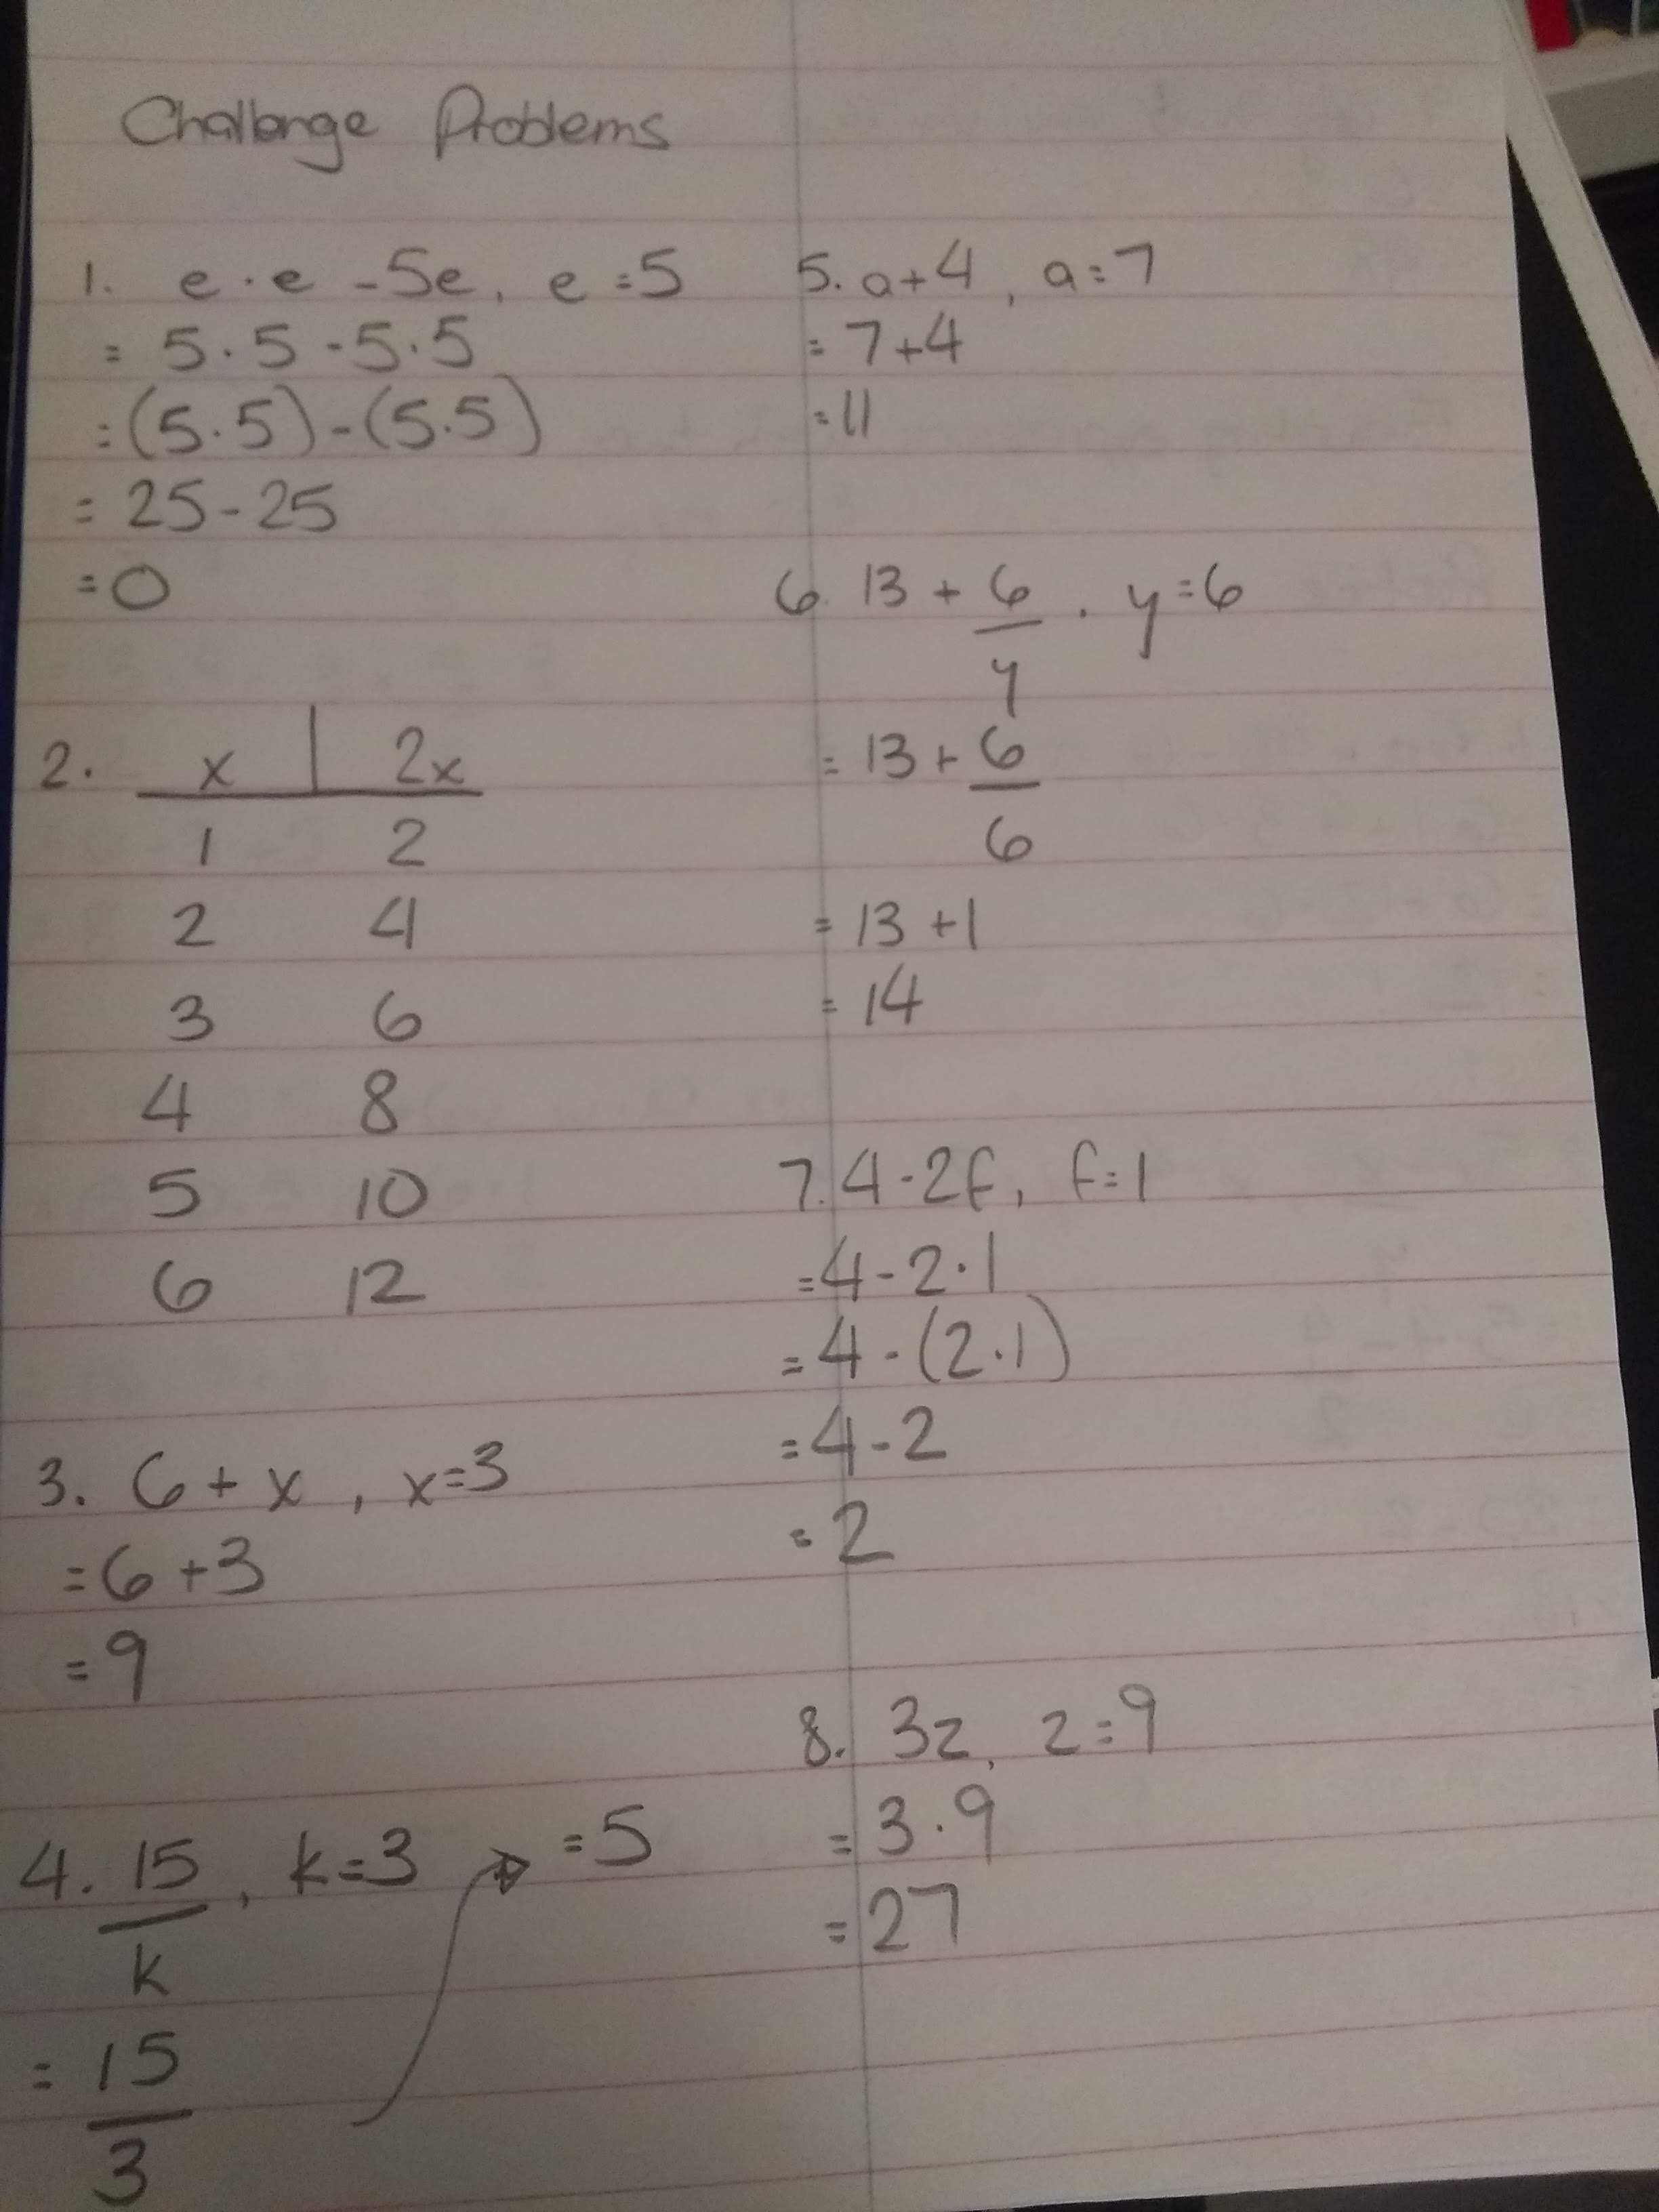 Challenge Problems
1. e · e - 5e, e = 5
= 5 · 5 - 5 · 5
= (5 · 5) - (5 · 5)
= 25 - 25
= 0
2. x | 2x
1 2
2 4
3 6
4 8
5 10
6 12
3. 6 + x , x = 3
= 6 + 3
= 9
4. 15/k , k = 3
= 15/3
= 5
5. a + 4 , a = 7
= 7 + 4
= 11
6. 13 + 6/y . y = 6
= 13 + 6/6
= 13 + 1
= 14
7. 4 - 2f , f = 1
= 4 - 2 · 1
= 4 - (2 · 1)
= 4 - 2
= 2
8. 3z , z = 9
= 3 · 9
= 27